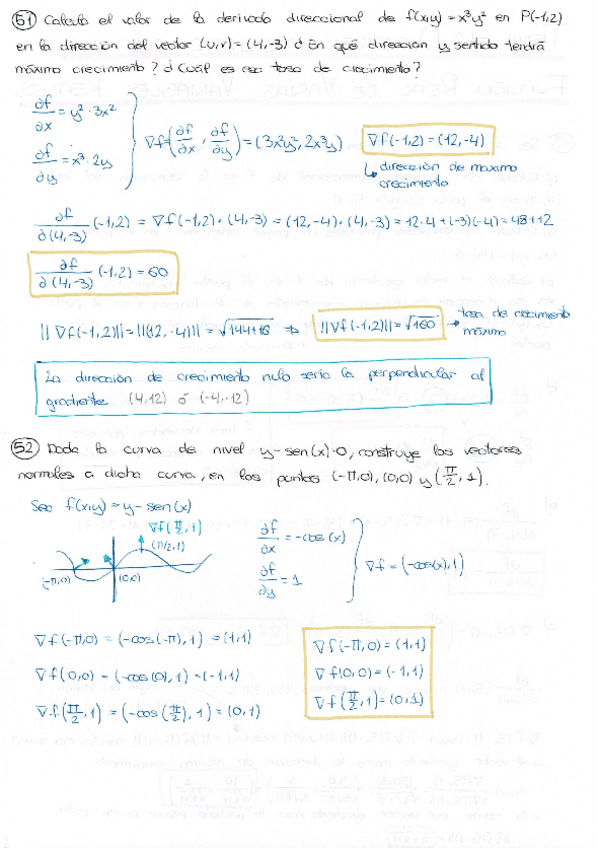 51 Calcula el valor de la derivada direccional de f(x,y) = x³y² en P(-1,2)
en la dirección del vector (u,v) = (4,-3) ¿En qué dirección y sentido tendrá
máximo crecimiento? ¿Cuál es esa tasa de crecimiento?
∂f/∂x = y² · 3x²
∂f/∂y = x³ · 2y
∇f = (∂f/∂x, ∂f/∂y) = (3x²y², 2x³y)
∇f(-1,2) = (12,-4)
↳ dirección de máximo
crecimiento
∂f/∂(4,-3) (-1,2) = ∇f(-1,2) · (4,-3) = (12,-4) · (4,-3) = 12·4 + (-3)(-4) = 48+12
∂f/∂(4,-3) (-1,2) = 60
||∇f(-1,2)|| = ||(12,-4)|| = √144+16 ⇒ ||∇f(-1,2)|| = √160 → tasa de crecimiento
máximo
La dirección de crecimiento nulo sería la perpendicular al
gradiente (4,12) ó (-4,-12)
52 Dada la curva de nivel y-sen(x)=0, construye los vectores
normales a dicha curva, en los puntos (-π,0), (0,0) y (π/2, 1).
Sea f(x,y) = y - sen(x)
∇f(π/2, 1)
(π/2, 1)
(-π,0)
(0,0)
∂f/∂x = -cos(x)
∂f/∂y = 1
∇f = (-cos(x), 1)
∇f(-π,0) = (-cos(-π), 1) = (1,1)
∇f(0,0) = (-cos(0), 1) = (-1,1)
∇f(π/2, 1) = (-cos(π/2), 1) = (0,1)
∇f(-π,0) = (1,1)
∇f(0,0) = (-1,1)
∇f(π/2, 1) = (0,1)